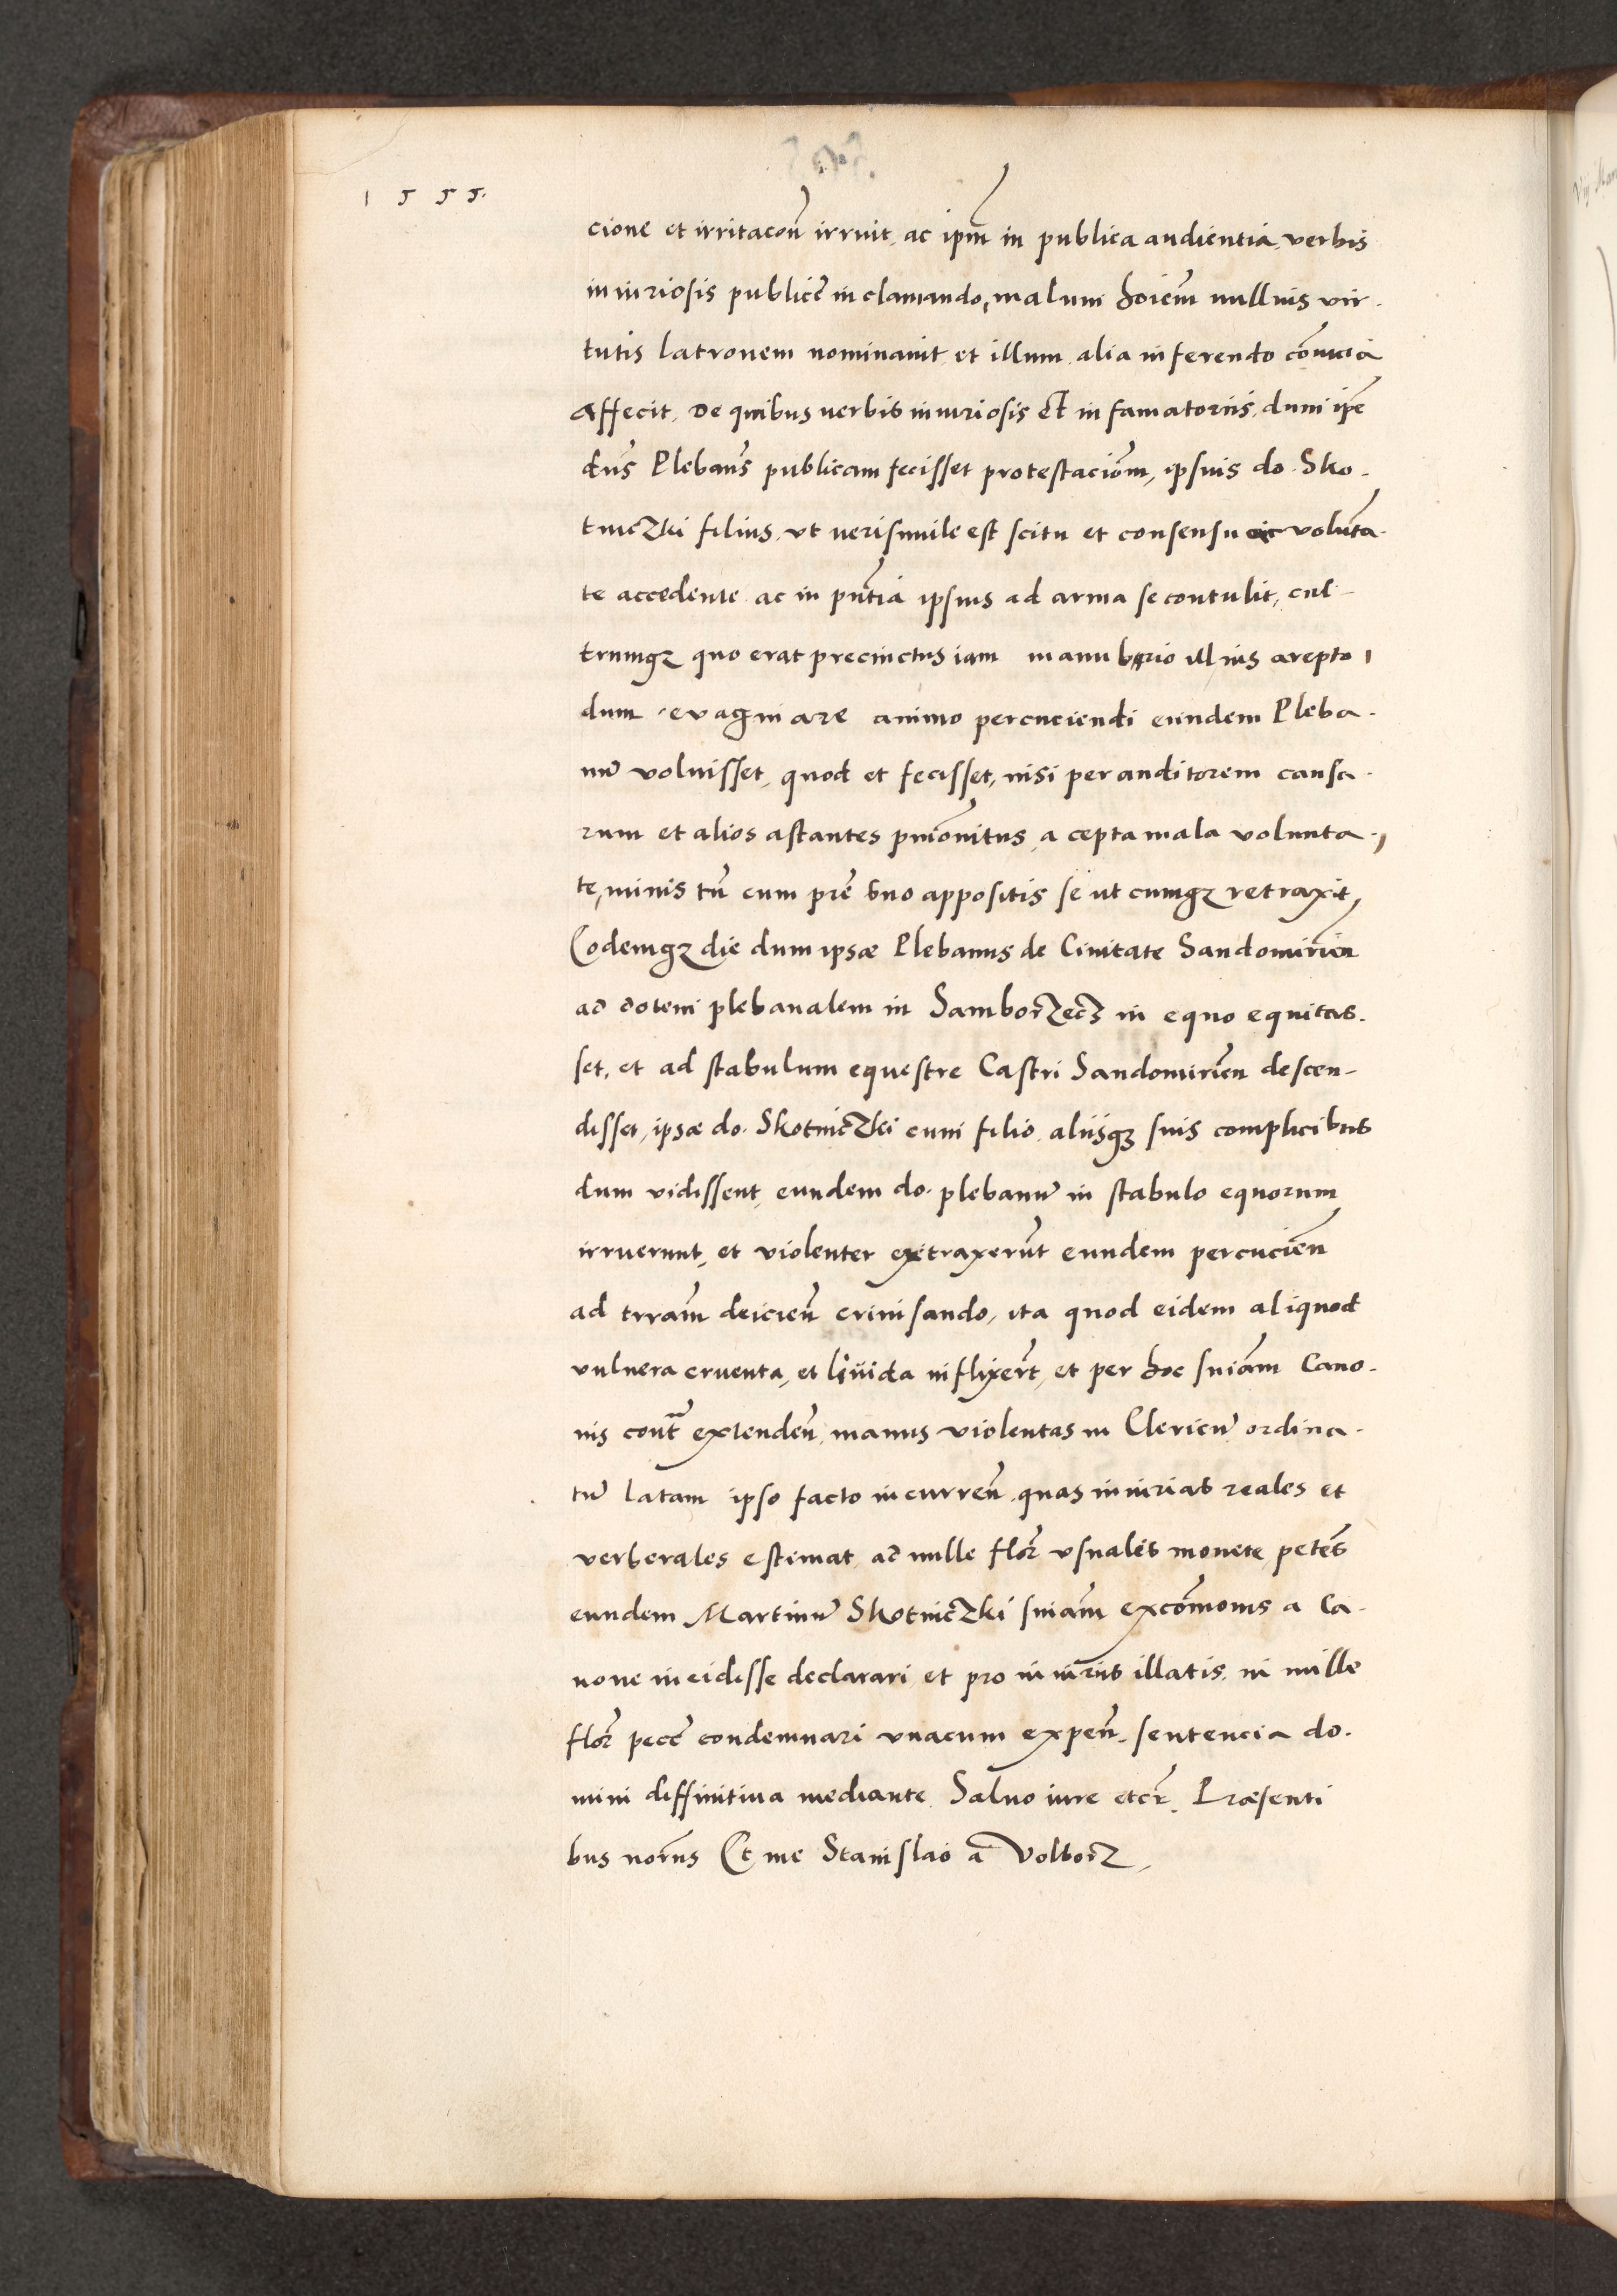 1555.
cione et irritacōn irruit, ac ipm̄ in publica audientia, verbis
iniuriosis publicē inclamando, malum hoiēm nullius vir-
tutis latronem nominauit et illum alia inferendo cōnuicia
affecit, De quibus uerbis iniuriosis et infamatoriis, dum ipē
dn̄s Plebanꝰ publicam fecisset protestaciōm, ipsius do. Sko-
tniczki filius, vt uerisimile est scitu et consensu ac volūta-
te accedente ac in pn̄tia ipsius ad arma se contulit, cul-
trumqꝫ quo erat precinctus iam manubrio illius arepto
dum evaginare animo percuciendi eundem Pleba-
nū voluisset, quod et fecisset, nisi per auditorem causa-
rum et alios astantes pmōnitus, a cepta mala volunta-
te, minis tn̄ cum prē suo appositis se ut cumqꝫ retraxit,
Eodemqꝫ die dum ipsæ Plebanus de Ciuitate Sandomirien̄
ad dotem plebanalem in Samborzecz in equo equitas-
set, et ad stabulum equestre Castri Sandomirien̄ descen-
disset, ipsæ do. Skotniczki cum filio, aliisqꝫ suis complicibus
dum vidissent, eundem do. plebanū in stabulo equorum
irruerunt, et violenter extraxerūt eundem percucien̄
ad trrām deicien̄ crinisando, ita quod eidem aliquod
vulnera cruenta, et liuida inflixerūt, et per hoc sniām Cano-
nis contͣ extenden̄, manus violentas in Clericū ordina-
tū latam ipso facto incurren̄, quas iniurias reales et
verberales estimat, ad mille flor̄ vsualis monete, petēs
eundem Martinū Skotniczki sniām excōmonis a Ca-
none incidisse declarari, et pro iniuriis illatis, in mille
flor̄ pecc̄ condemnari vnacum expen̄, sentencia do-
mini diffinitiua mediante, Saluo iure etcr̄, Præsenti
bus norn̄s Et me Stanislao a Volborz